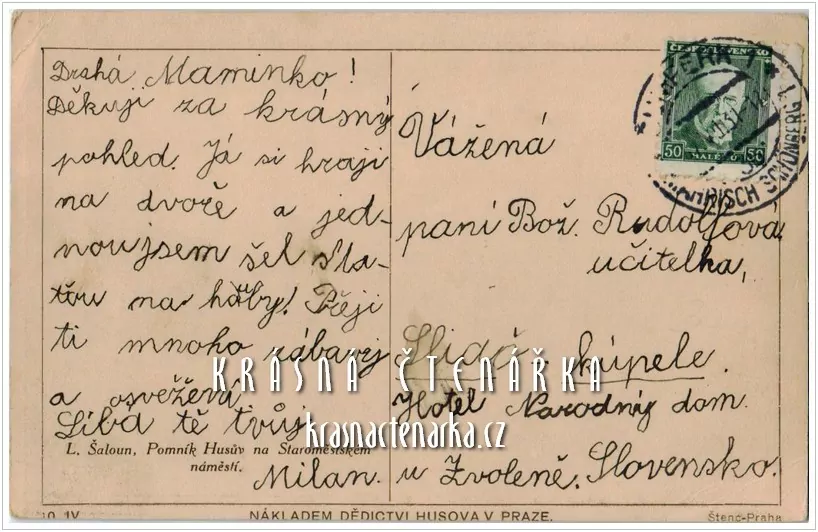 Drahá Maminko!
Děkuji za krásný
pohled. Já si hraji
na dvoře a jed-
nou jsem šel s ta-
tou na hřiby! Přeji
ti mnoho zábavy
a osvěžení
Líbá tě tvůj
Milan.
L. Šaloun, Pomník Husův na Staroměstském
náměstí.
Vážená
paní Bož. Rudolfová
učitelka,
Sliač - kúpele.
Hotel Narodný dom
u Zvoleně. Slovensko.
ČESKOSLOVENSKO
50 HALÉŘŮ 50
MÄHRISCH SCHÖNBERG
KRÁSNÁ ČTENÁŘKA
krasnactenarka.cz
NÁKLADEM DĚDICTVÍ HUSOVA V PRAZE.
Štenc-Praha